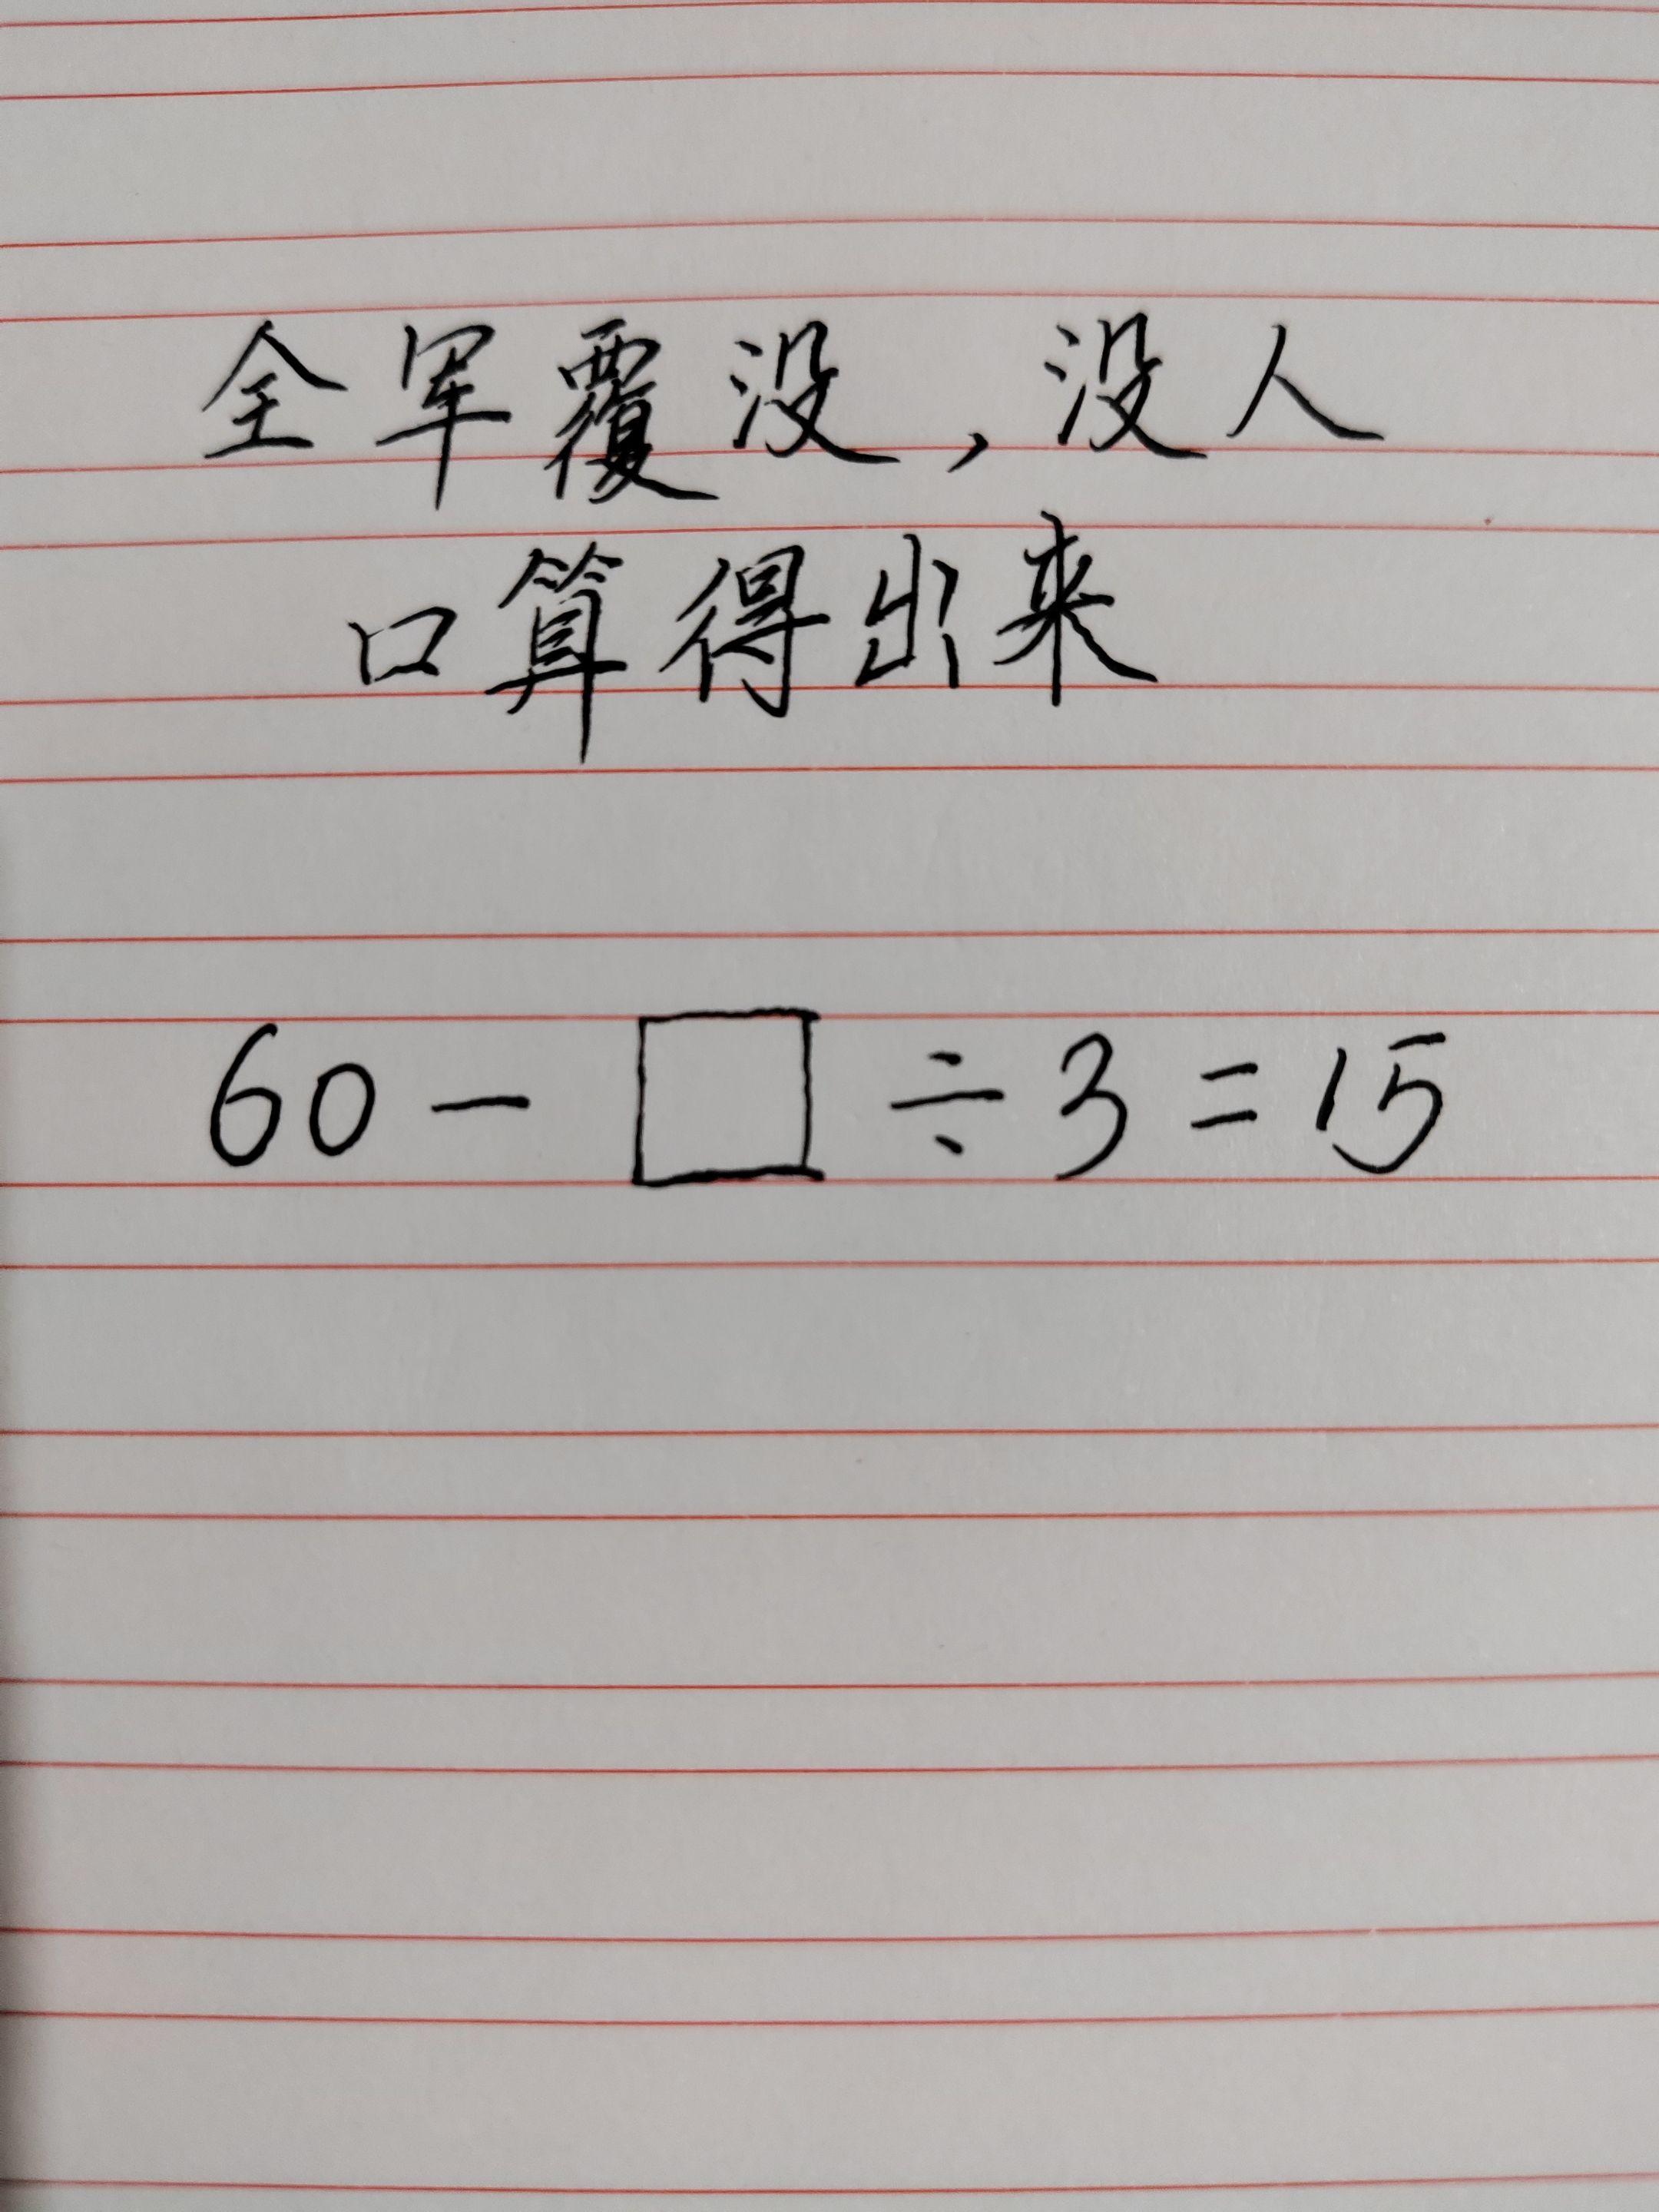 全军覆没,没人
口算得出来
60-□÷3=15